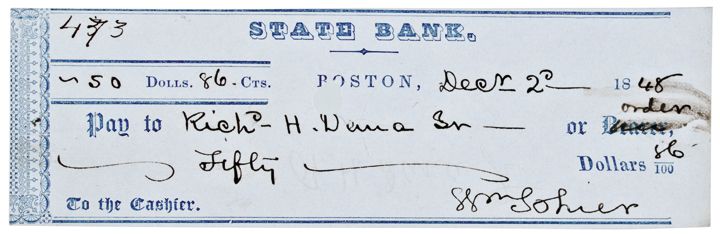 4373 STATE BANK.
~50 DOLLS. 86 - CTS. BOSTON, Decr 2d — 1848
order
Pay to Richd H. Dana — or Bearer,
Fifty Dollars 86/100
To the Cashier. Wm Sohier